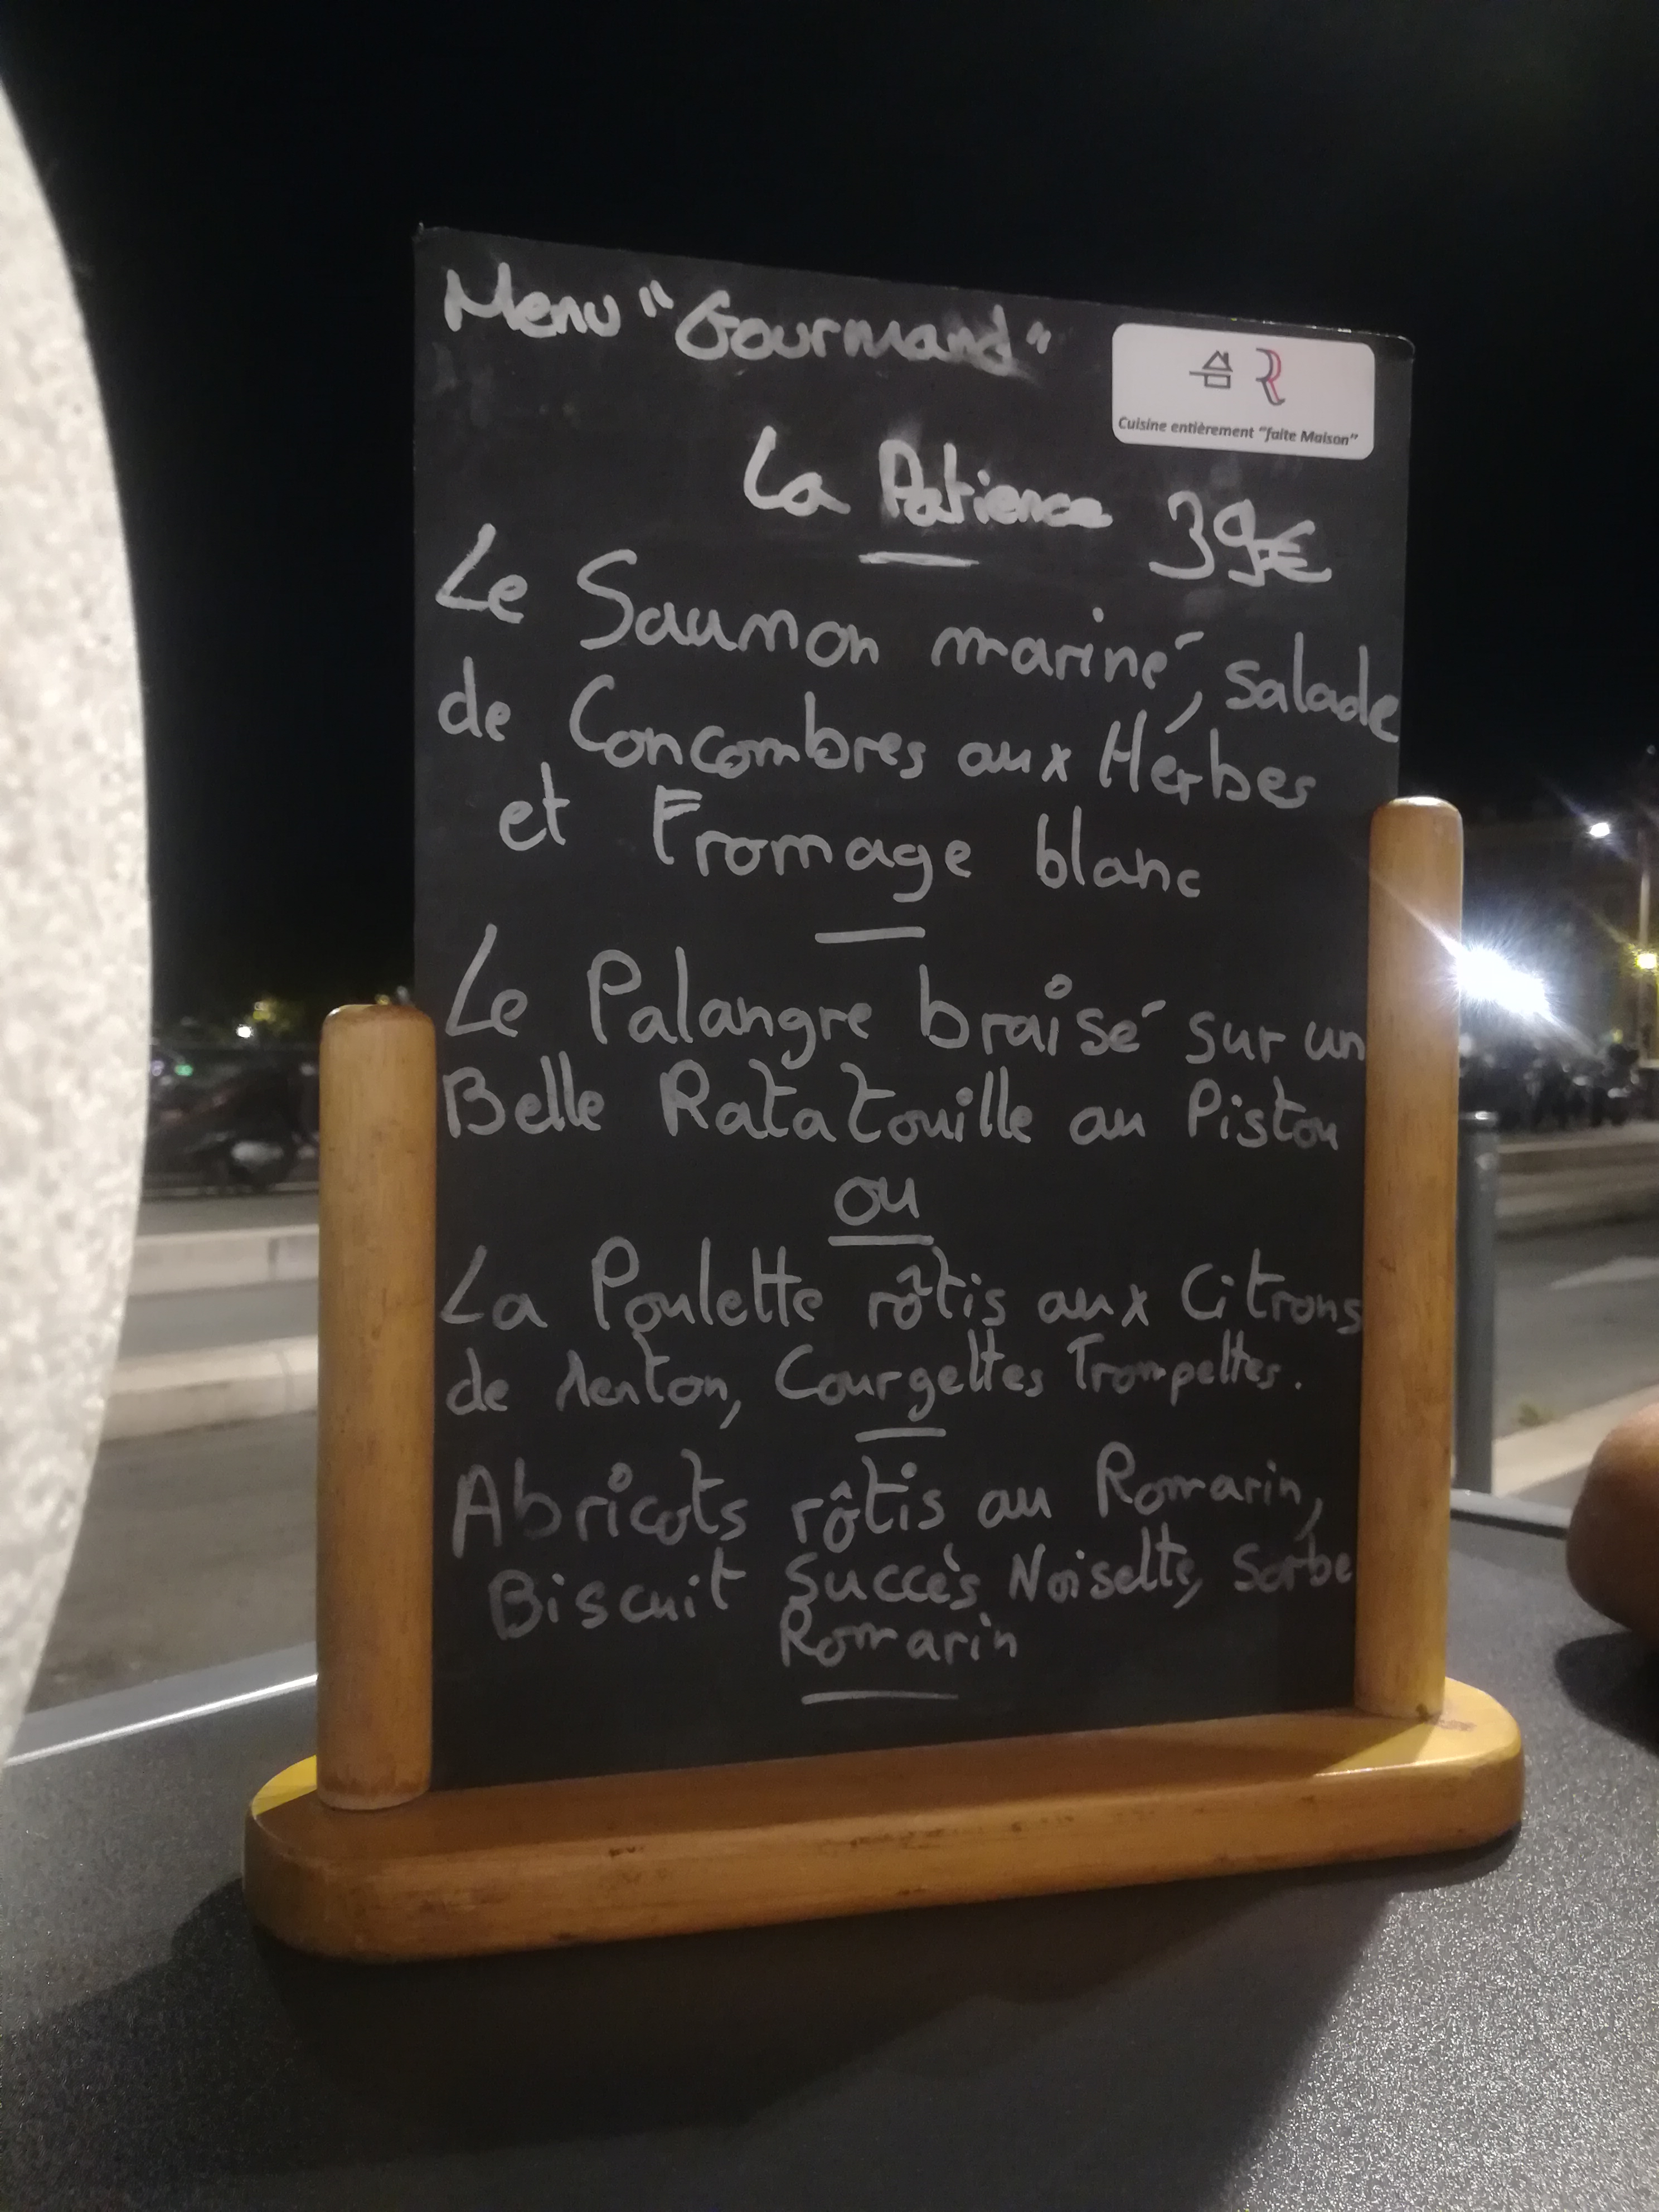 Menu "Gourmand"
Cuisine entièrement "faite Maison"
La Patience 39€
Le Saumon mariné, salade
de Concombres aux Herbes
et Fromage blanc
Le Palangre braisé sur un
Belle Ratatouille au Pistou
ou
La Poulette rôtis aux Citrons
de Menton, Courgettes Trompettes.
Abricots rôtis au Romarin,
Biscuit Succès Noisette, Sorbe
Romarin